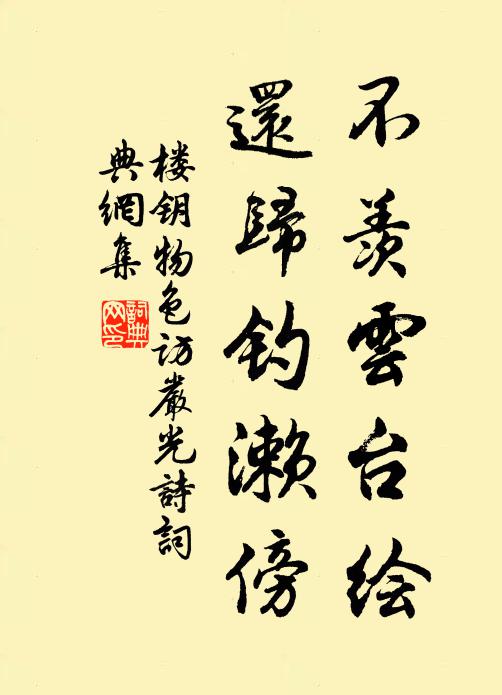 不羡雲台绘
還歸钓濑傍
楼钥物色访嚴光詩詞
典網集
詞典
网印